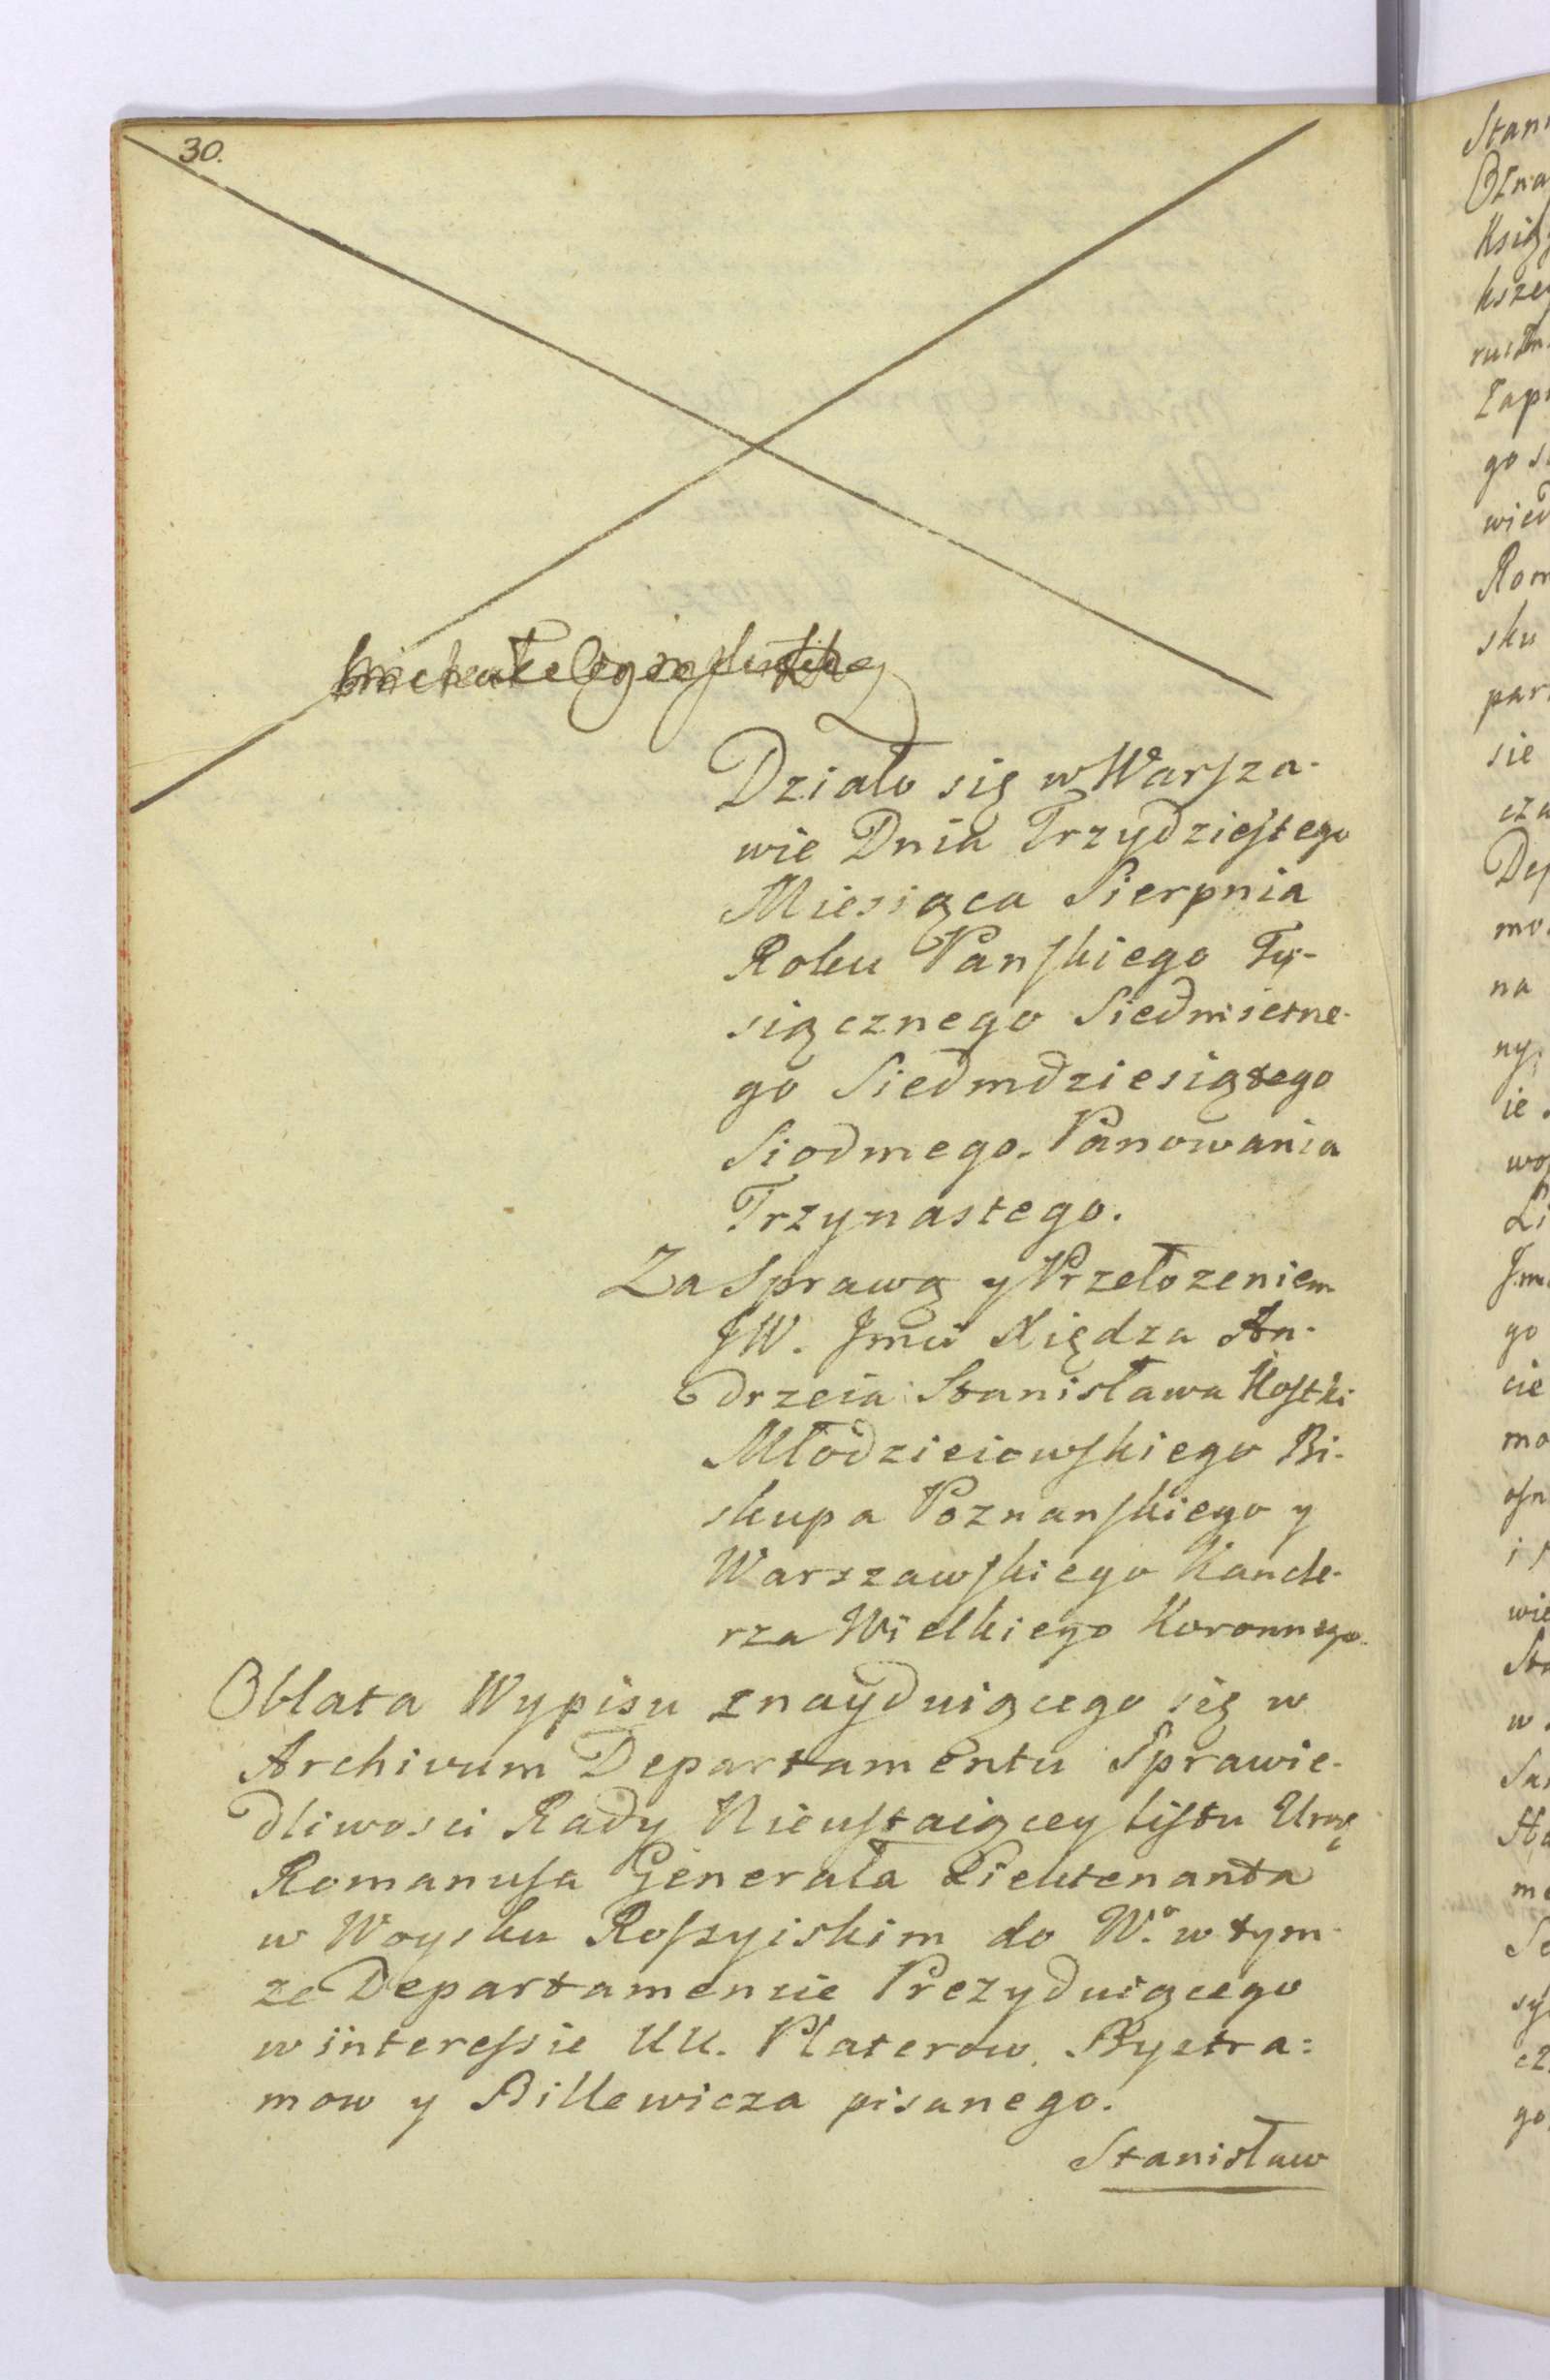 30.
Działo się w Warsza-
wie Dnia Trzydziestego
Miesiąca Sierpnia
Roku Panskiego Ty-
siącznego Siedmsetne-
go Siedmdziesiątego
Siodmego. Panowania
Trzynastego.
Za Sprawą y Przełozeniem
JW. Jmci Xiędza An-
drzeia Stanisława Kostki
Młodzieiowskiego Bi-
skupa Poznanskiego y
Warszawskiego Kancle-
rza Wielkiego Koronnego.
Oblata Wypisu znayduiącego się w
Archivum Departamentu Sprawie-
dliwosci Rady Nieustaiącey listu Urgo
Romanusa Generała Lieutenanta
w Woysku Rossyiskim do Wo. w tym-
ze Departamencie Prezyduiącego
w interessie UU. Platerow, Bystra=
mow y Billewicza pisanego.
Stanisław
Stan
Ozna
Ksią
kszeg
Zapr
go s
wied
Rom
sku
par
sie
cza
Dep
mo
na
ny
ie
wo
Li
Jm
go
cie
mo
i
wie
Sta
w
go